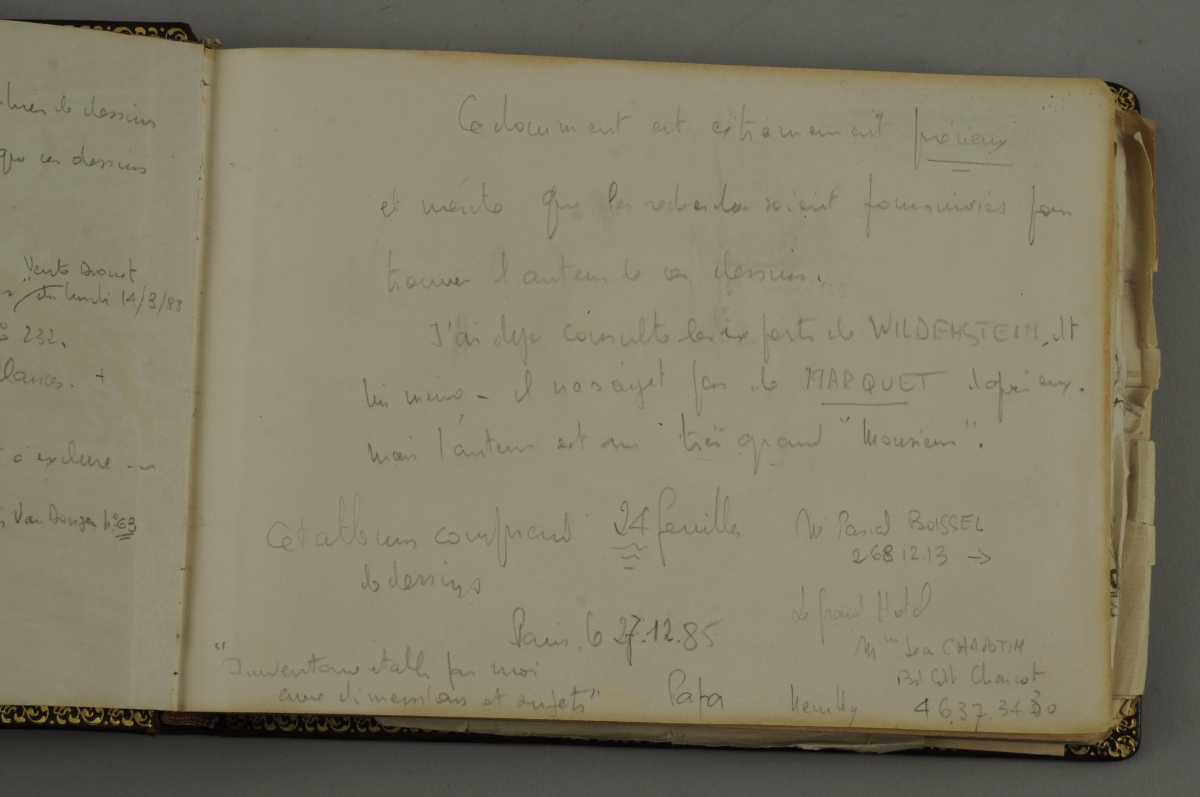 de dessins
que ces dessins
Vente Drouot
du lundi 14/3/88
232.
à exclure
Van Dongen n° 63
Ce document est extrêmement précieux
et mérite que les recherches soient poursuivies pour
trouver l'auteur de ces dessins.
J'ai déjà consulté les experts de WILDENSTEIN, dt
il ne s'agit pas de MARQUET d'après eux.
mais l'auteur est un très grand "Monsieur".
Cet album comprend 24 feuilles
de dessins
Mr Pascal BOISSEL
268 12.13 →
Le Grand Hotel
Paris, le 27.12.85
"Inventaire établi par moi
avec dimensions et sujets"
Papa
Mme CHAPOTIN
Bd Charcot
Neuilly 4637.34